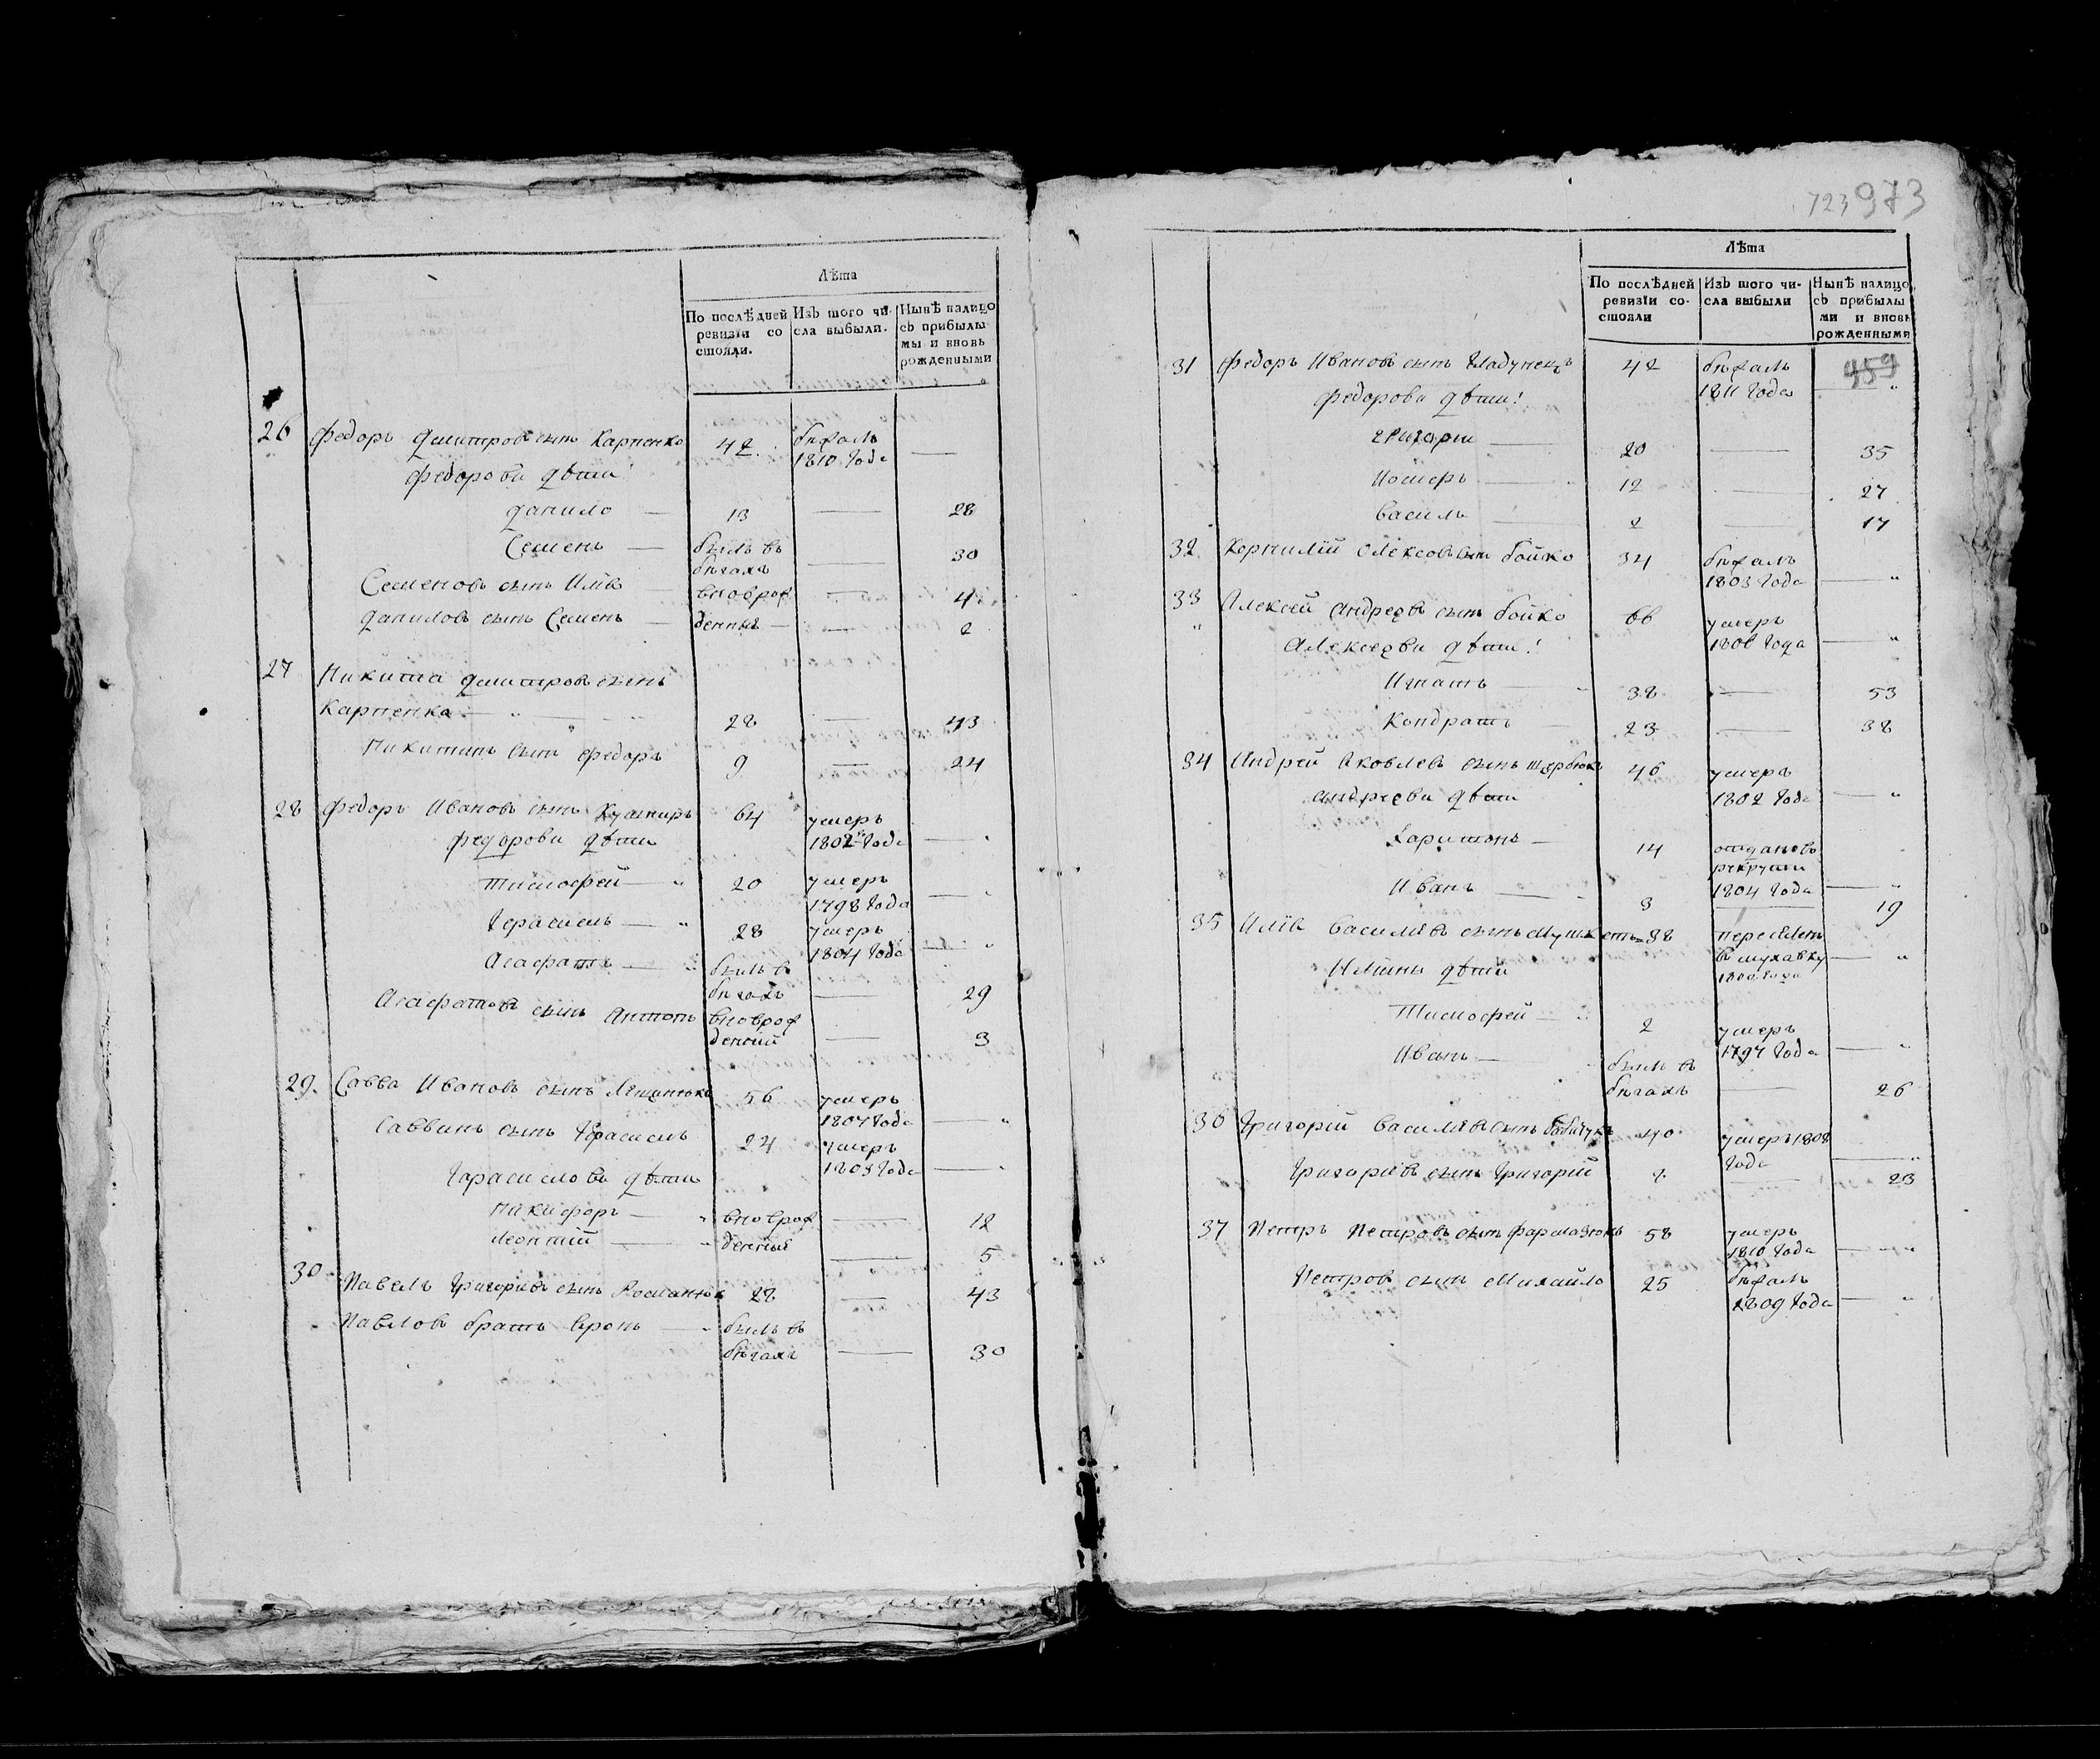 Лѣта
По послѣдней ревизїи состояли.
Изъ того числа выбыли.
Нынѣ налицо съ прибылыми и вновь рожденными
26 Федоръ Дмитровъ сынъ Карпенко 42 бѣжалъ 1810 года —
Федорови дѣти
Данило — 13 — 28
Семенъ — былъ въ бѣгахъ — 30
Семеновъ сынъ Илїя — вноврож — 4
Даниловъ сынъ Семенъ — денные — 2
27 Никита Дмитровъ сынъ
Карпенко 28 — 43
Никитинъ сынъ Федоръ 9 — 24
28 Федоръ Ивановъ сынъ Кушниръ 64 умеръ 1802 года —
Федорови дѣти
Тимофей — 20 умеръ 1798 года —
Герасимъ — 28 умеръ 1804 года —
Агафатъ — былъ в бѣгахъ — 29
Агафатовъ сынъ Антонъ вноврожденный — 3
29. Савва Ивановъ сынъ 56 умеръ 1807 года —
Саввинъ сынъ Герасимъ 24 умеръ 1803 года —
Герасимовы дѣти
Никифоръ — вноврож — 12
Леонтий — денные — 5
30 Павелъ Григорїевъ сынъ Романюк 28 — 43
Павловъ братъ — былъ в бѣгахъ — 30
723 973
Лѣта
По послѣдней ревизїи состояли
Изъ того числа выбыли
Нынѣ налицо съ прибылыми и вновь рожденными
959
31 Федоръ Ивановъ сынъ 42 бѣжалъ 1811 года —
Федорови дѣти:
Григории — 20 — 35
— 12 — 27
Василь — 2 — 17
32 Корнилїй Олексовъ сынъ Бойко 34 бѣжалъ 1803 года —
33 Алексей Андреевъ сынъ Бойко 66 умеръ 1806 года —
Алексеэви дѣти:
Игнатъ — 38 — 53
Кондратъ 23 — 38
34 Андрей Яковлевъ сынъ Щербюкъ 46 умеръ 1802 года —
Андреэви дѣти
Харитонъ — 14 отданъ въ рекруты 1804 года —
Иванъ — 3 — 19
35 Илїя Василїевъ сынъ Мушкетъ 38 переселенъ 1800 года —
Илїины дѣти
Тимофей — 2 умеръ 1797 года —
Иванъ — былъ в бѣгахъ — 26
36 Григорїй Василїевъ сынъ Бабичукъ 40 умеръ 1808 года —
Григорїевъ сынъ Григорїй — 23
37 Петръ Петровъ сынъ Фармазюкъ 58 умеръ 1810 года —
Петровъ сынъ Михайло 25 бѣжалъ 1809 года —